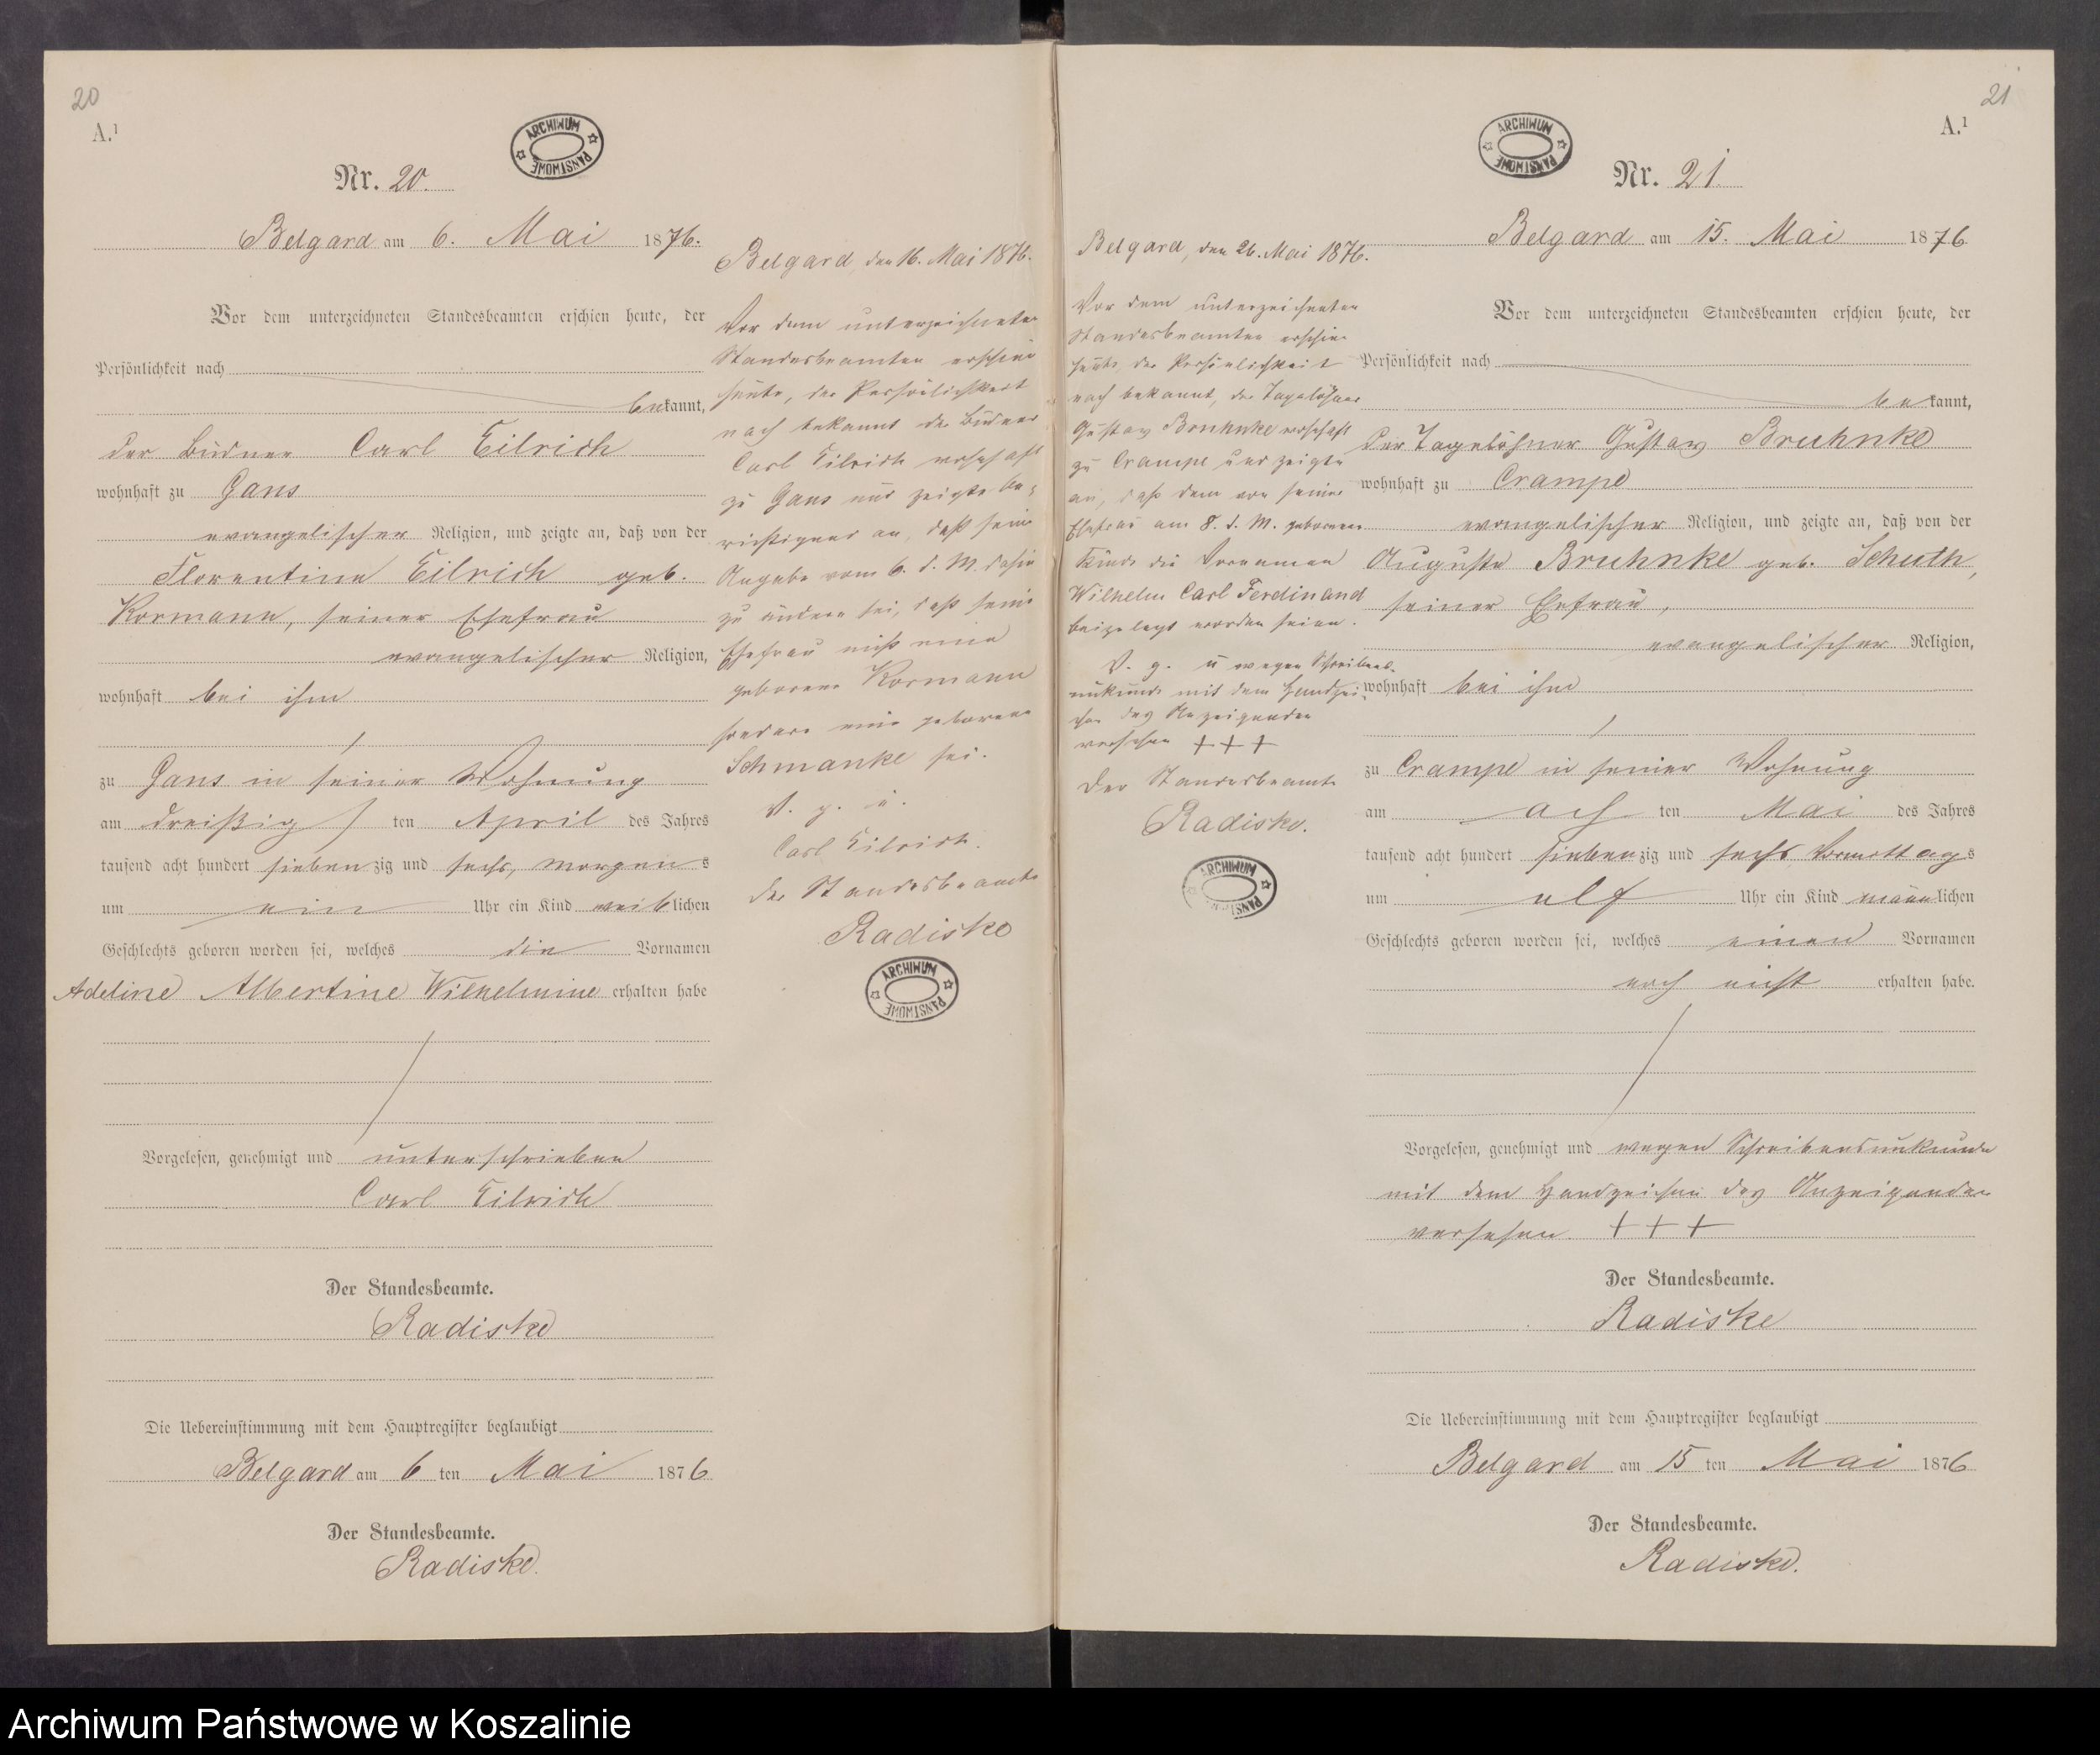 20
A.¹
ARCHIWUM PAŃSTWOWE
Nr. 20.
Belgard am 6. Mai 1876.
Vor dem unterzeichneten Standesbeamten erschien heute, der
Persönlichkeit nach
bekannt,
der Büdner Carl Eilrich
wohnhaft zu Gans
evangelischer Religion, und zeigte an, daß von der
Florentine Eilrich geb.
Kormann, seiner Ehefrau
evangelischer Religion,
wohnhaft bei ihm
zu Gans in seiner Wohnung
am dreißig ten April des Jahres
tausend acht hundert siebenzig und sechs, morgens
um ein Uhr ein Kind weiblichen
Geschlechts geboren worden sei, welches die Vornamen
Adeline Albertine Wilhelmine erhalten habe
Vorgelesen, genehmigt und unterschrieben
Carl Eilrich
Der Standesbeamte.
Radiske
Die Uebereinstimmung mit dem Hauptregister beglaubigt
Belgard am 6 ten Mai 1876
Der Standesbeamte.
Radiske.
Belgard, den 16. Mai 1876.
Vor dem unterzeichneten
Standesbeamten erschien
heute, der Persönlichkeit
nach bekannt der Büdner
Carl Eilrich wohnhaft
zu Gans und zeigte be-
richtigend an, daß seine
Angabe vom 6. d. M. dahin
zu ändern sei, daß seine
Ehefrau nicht eine
geborene Kormann
sondern eine geborene
Schmanke sei.
V. g. u.
Carl Eilrich.
Der Standesbeamte
Radiske
ARCHIWUM PAŃSTWOWE
21
A.¹
ARCHIWUM PAŃSTWOWE
Nr. 21.
Belgard am 15. Mai 1876
Vor dem unterzeichneten Standesbeamten erschien heute, der
Persönlichkeit nach
bekannt,
der Tagelöhner Gustav Bruhnke
wohnhaft zu Crampe
evangelischer Religion, und zeigte an, daß von der
Auguste Bruhnke geb. Schuth,
seiner Ehefrau,
evangelischer Religion,
wohnhaft bei ihm
zu Crampe in seiner Wohnung
am ach ten Mai des Jahres
tausend acht hundert siebenzig und sechs Vormittags
um elf Uhr ein Kind männlichen
Geschlechts geboren worden sei, welches einen Vornamen
noch nicht erhalten habe.
Vorgelesen, genehmigt und wegen Schreibensunkunde
mit dem Handzeichen des Anzeigenden
versehen. + + +
Der Standesbeamte.
Radiske
Die Uebereinstimmung mit dem Hauptregister beglaubigt
Belgard am 15 ten Mai 1876
Der Standesbeamte.
Radiske.
Belgard, den 26. Mai 1876.
Vor dem unterzeichneten
Standesbeamten erschien
heute, der Persönlichkeit
nach bekannt, der Tagelöhner
Gustav Bruhnke wohnhaft
zu Crampe und zeigte
an, daß dem von seiner
Ehefrau am 8. d. M. geborenen
Kinde die Vornamen
Wilhelm Carl Ferdinand
beigelegt worden seien.
V. g. u wegen Schreibens-
unkunde mit dem Handzei-
chen des Anzeigenden
versehen + + +
Der Standesbeamte
Radiske.
ARCHIWUM PAŃSTWOWE
Archiwum Państwowe w Koszalinie